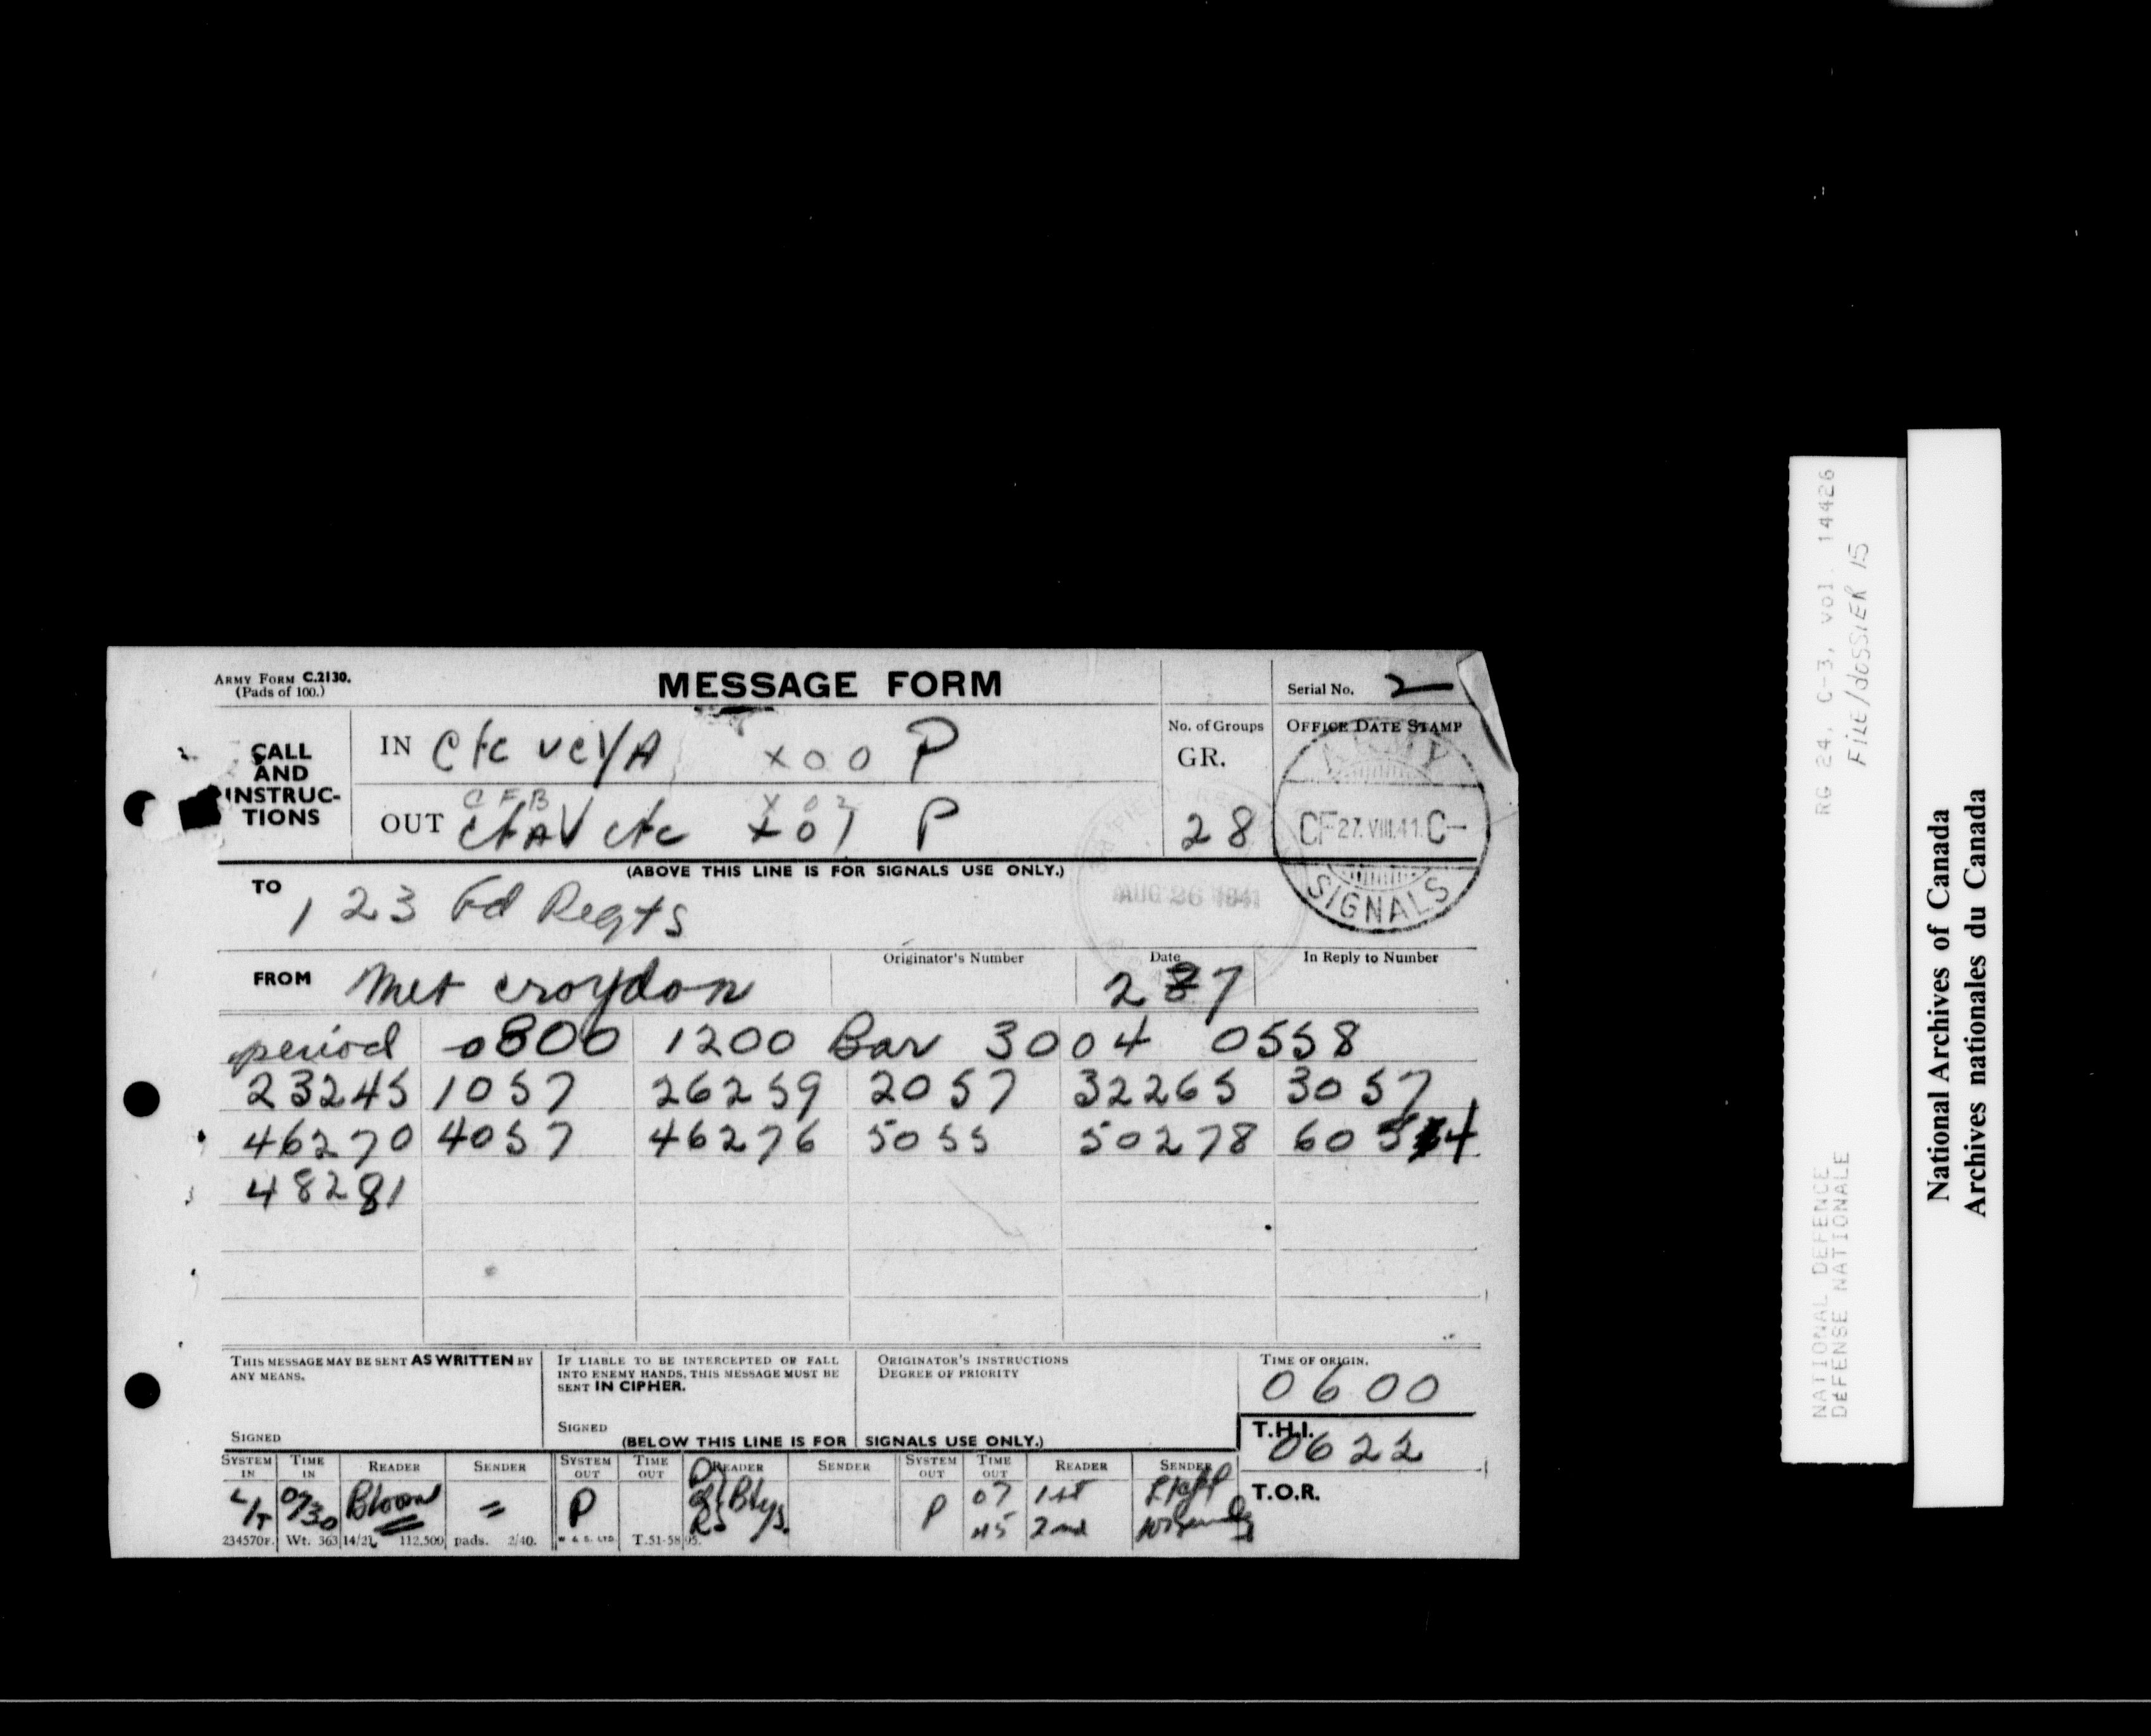 ARMY FORM C.2130.
(Pads of 100.)
MESSAGE FORM
Serial No. 2
CALL AND INSTRUC-TIONS
IN cfc v cYA X00 P
No. of Groups
GR.
28
OFFICE DATE STAMP
ARMY
CF 27.VIII.41.C-
SIGNALS
CFB X02
OUT v cfc X01 P
(ABOVE THIS LINE IS FOR SIGNALS USE ONLY.)
AUG 26 1941
TO 1 2 3 Fd Regts
FROM Met croydon
Originator's Number
Date 27
In Reply to Number
period 0800 1200 Bar 3004 0558
23245 1057 26259 2057 32265 3057
46270 4057 46276 5055 50278 6054
48281
THIS MESSAGE MAY BE SENT AS WRITTEN BY
ANY MEANS.
SIGNED
IF LIABLE TO BE INTERCEPTED OR FALL
INTO ENEMY HANDS, THIS MESSAGE MUST BE
SENT IN CIPHER.
SIGNED
ORIGINATOR'S INSTRUCTIONS
DEGREE OF PRIORITY
TIME OF ORIGIN.
0600
T.H.I.
0622
T.O.R.
(BELOW THIS LINE IS FOR SIGNALS USE ONLY.)
SYSTEM IN TIME IN READER SENDER SYSTEM OUT TIME OUT READER SENDER SYSTEM OUT TIME OUT READER SENDER
L/T 0730 Bloom = P Btys. P 0745 1st 2nd
234570F. Wt. 363 14/21 112,500 pads. 2/40. W & S. LTD. T.51-58
RG 24, C-3, vol. 14426
FILE/dOSSIER 15
NATIONAL DEFENCE
DEFENSE NATIONALE
National Archives of Canada
Archives nationales du Canada